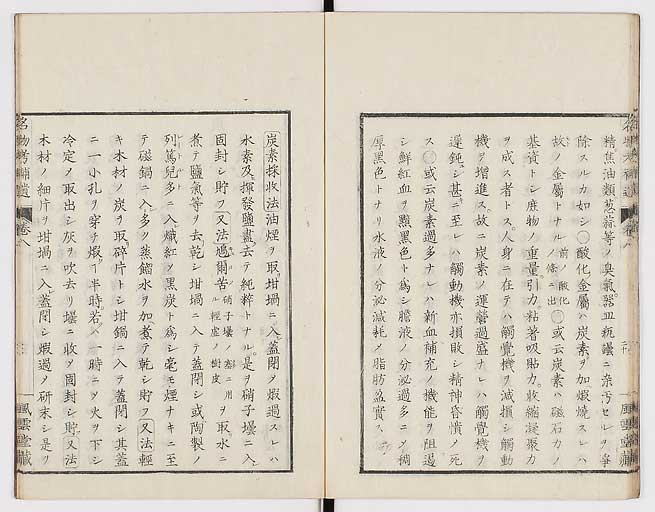 精焦油類葱蒜等ノ臭氣器皿瓶罎ニ染汚セルヲ爭
除スルカ如シ○酸化金屬ハ炭素ヲ加煆燒スレハ
故ノ金屬トナル前ノ酸化ノ條ニ出○或云炭素ハ磁石力ノ
基資トシ庶物ノ重量引力粘著吸貼力收縮凝聚力
ヲ成ス者トス人身ニ在テハ觸覺機ヲ減損シ觸動
機ヲ增進ス故ニ炭素ノ運營過盛ナレハ觸覺機ヲ
遲鈍シ甚ニ至レハ觸動機亦損敗シ精神昏憒ノ死
ス○或云炭素過多ナレハ新血補充ノ機能ヲ阻遏
シ鮮紅血ヲ黯黑色ト爲シ膽液ノ分泌過多ニノ稠
厚黑色トナリ水液ノ分泌減耗ノ脂肪盈實ス
風雲堂藏
炭素採收法油煙ヲ取坩堝ニ入蓋閉ノ煆過スレハ
水素及揮發鹽盡去テ純粹トナル是ヲ硝子壜ニ入
固封シ貯フ又法鳰爾苦ル硝子壜ノ塞ニ用ル輕虛ノ樹皮ヲ取水ニ
煮テ鹽氣等ヲ去乾シ坩堝ニ入テ蓋閉シ或陶製ノ
列篤兒多ニ入熾紅ノ黑炭ト爲シ毫モ煙ナキニ至
テ磁鍋ニ入多ク蒸餾水ヲ加煮テ乾シ貯フ又法輕
キ木材ノ炭ヲ取碎片トシ坩鍋ニ入テ蓋閉シ其蓋
ニ一小孔ヲ穿チ煆ヿ半時若ハ一時ニノ火ヲ下シ
冷定ノ取出シ灰ヲ吹去リ壜ニ收ヲ固封シ貯又法
木材ノ細片ヲ坩堝ニ入蓋閉シ煆過ノ研末シ是ヲ
名物考補遺 卷八
風雲堂藏